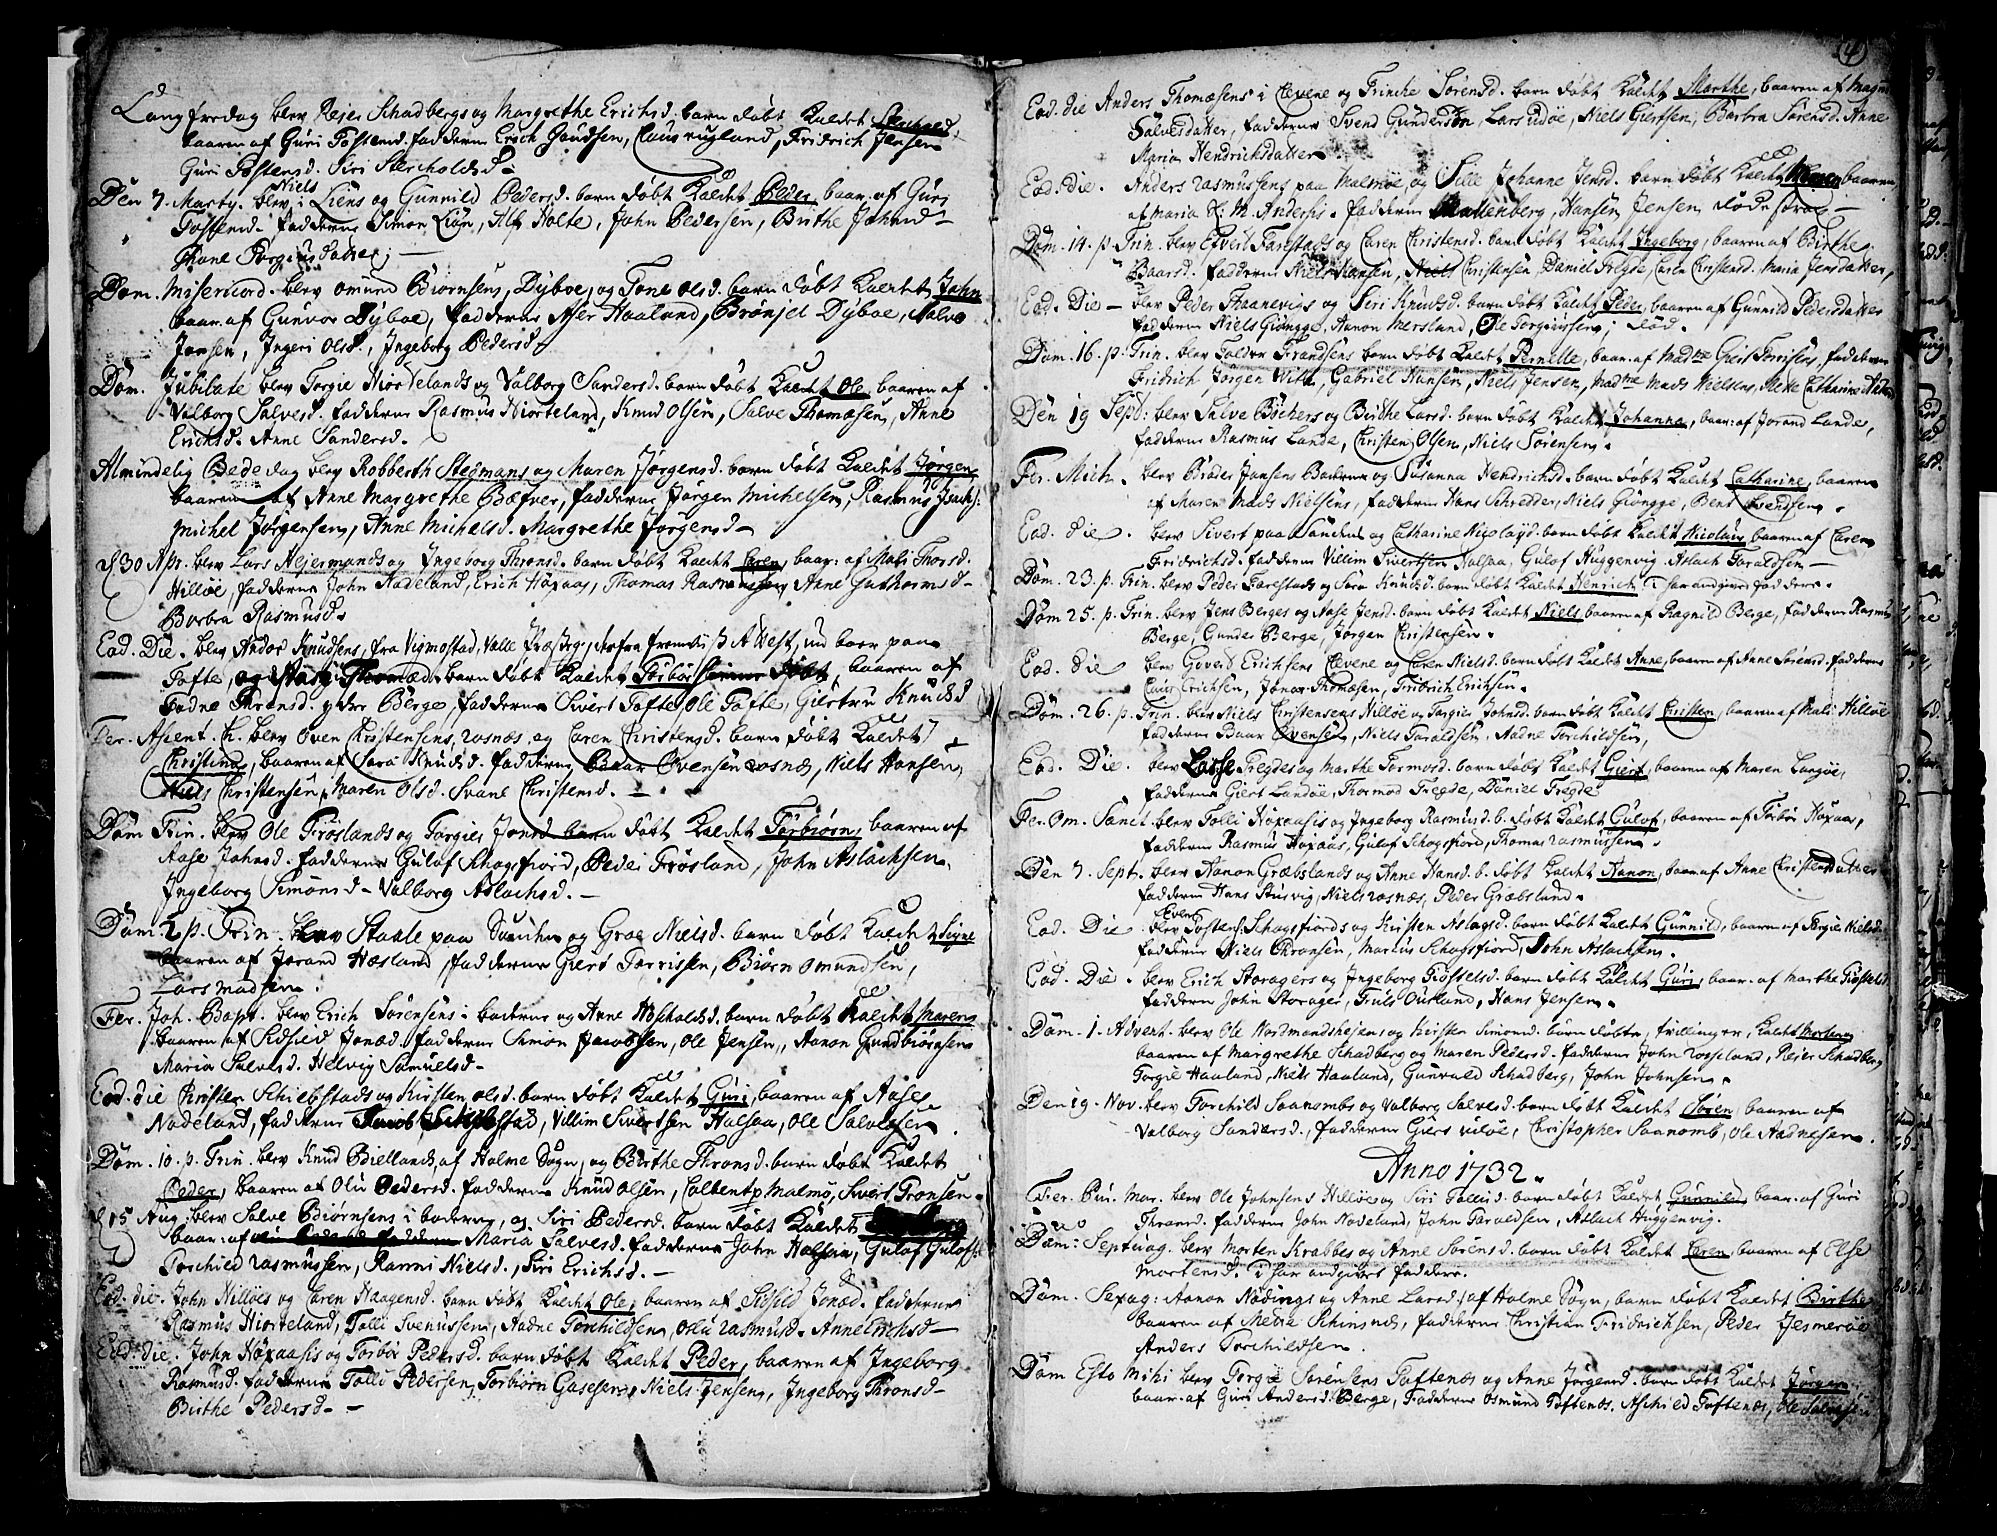 Langfredag blev Reier Schadbergs og Margrethe Erichsd. barn døbt Kaldet
baaren af Guri Tostensd. faddere Erich Gundsen, Claus rugland, Fridrich Jensen
Guri Tostensd. Siri Stercholsd.
Den 7. Marty. blev Niels Liens og Gunnild Pedersd. barn døbt Kaldet Peder, baar. af Guri
Tostensd. faddere Simon Lien, Alf Holte, John Pedersen, Birthe Johnsd.
Thone Torgiusdatter;
Dom. Misericord. blev Omund Biørnsens, Dyboe, og Tone Olsd. barn døbt Kaldet John
baar. af Gunvor Dyboe, faddere Aser Haaland, Brønjel Dyboe, Salve
Jansen, Ingeri Olsd., Ingeborg Pedersd.
Dom. Jubilate blev Torgie Hiortelands og Valborg Sandersd. barn døbt Kaldet Ole, baaren af
Valborg Salvesd. faddere Rasmus Hiorteland, Knud Olsen, Salve Thomæsen, Anne
Erichsd. Anne Sandersd.
Almindelig Bededag blev Robberth Stegmans og Maren Jørgensd. barn døbt Kaldet Jørgen
baaren af Anne Margrethe Bæfver, faddere Jørgen Michelsen, Rasmus Isachs:
Michel Jørgensen, Anne Michelsd. Margrethe Jørgensd.
d. 30 Apr. blev Lars Agiermands og Ingeborg Thronsd. barn døbt Kaldet Caren, baar: af Mali Thorsd.
Hilløe, faddere John Nadeland, Erich Høxaas, Thomas Rasmusen, Anne Guthormsd.
Barbra Rasmusd.
Eod. Die. blev Andor Knudsens, fra Vigmostad, Valle Præstegr, A West, ud boer paa
Tofte, og Thomæd. barn døbt Kaldet Torbor, baaren af
Aadne Thronsd. ydre Berge, faddere Sivert Tofte, Ole Tofte, Giertru Knudsd
Fer. Ascent. C. blev Oven Christensens, rosnæs, og Caren Christensd. barn døbt Kaldet
Christina, baaren af Sara Knudsd. faddere Baar Ovensen rosnæs, Niels Hansen,
Niels Christensen, Maren Olsd. Svane Christensd.
Dom Trin. blev Ole Trøslands og Torgier Jonsd barn døbt Kaldet Torbiørn, baaren af
Aase Johnsd. faddere Gulof Schogsfiord, Peder Trøsland, John Aslachsen
Ingeborg Simonsd. Valborg Aslachsd.
Dom. 2 p. Trin. blev Staale paa Sanden og Groe Nielsd. barn døbt Kaldet Signe
baaren af Jorand Hæsland, faddere Gierø Torrissen, Biørn Omundsen,
Lars Madsen.
Fer. Joh. Bapt. blev Erich Sørensens i baderne og Anne Hoskoldsd. barn døbt Kaldet Maren
baaren af Sidsild Jonæd. faddere Simon Jacobsen, Ole Jensen, Aanon Gundbiørnsen
Maria Salvesd. Helvig Samuelsd.
Eod. die Christen Schiebstads og Kirsten Olsd. barn døbt Kaldet Guri, baaren af Aase
Nadeland, faddere Jacob Schibstad, Villim Sivertsen Halsaa, Ole Salvesen
Dom. 10. p. Trin. blev Knud Biellands, af Holme Sogn, og Birthe Thronsd. barn døbt Kaldet
Peder, baaren af Olu Pedersd. faddere Knud Olsen, Colbent p Malmø, Sivert Tronsen
d. 15 Aug. blev Salve Biørnsens i baderne, og Siri Pedersd. barn døbt Kaldet
baar: af Maria Salvesd. faddere John Halsaa, Gulof Gulofs:
Torchild rasmussen, Ranni Nielsd., Siri Erichsd.
Eod. die. John Hilløes og Caren Haagensd. barn døbt Kaldet Ole, baaren af Sidsild Jonæd. faddere
Rasmus Hiorteland, Tolli Svenussen, Aadne Torchildsen, Olu rasmusd. Anne Erichsd.
Eod. die. John Høxaasis og Torbor Pedersd. barn døbt Kaldet Peder, baaren af Ingeborg
Rasmusd. faddere Tolli Pedersen, Torbiørn Gasesen, Niels Jensen, Ingeborg Thronsd.
Birthe Pedersd.
4
Eod. die Anders Thomæsens i Clevene og Trinche Sørensd. barn døbt Kaldet Marthe, baaren af Magni
Salvesdatter, faddere Svend Gundersøn, Lars udøe, Niels Giertsen, Barbra Sørensd. Anne
Maria Hendrichsdatter.
Eod. die. Anders rasmussens paa Malmøe og Sille Johanne Jensd. barn døbt Kaldet Maren baaren
af Maria Anders. faddere Mallenberg, Hansen, Jensen,
Dom. 14. p. Trin. blev Efverd Farestads og Caren Christensd. barn døbt Kaldet Ingeborg, baaren af Birthe
Baarsd. faddere Niels Hansen, Niels Christensen, Daniel Tregde, Caren Christensd. Maria Jensdatter,
Eod. Die blev Peder Thaanevigs og Siri Knudsd. barn døbt Kaldt Peder, baaren af Gunnild Pedersdatter
faddere Niels Giøngge, Aanon Mersland, Ole Torgiusen; død.
Dom. 16. p. Trin. blev Folder Frandsens barn døbt Kaldt Pernille, baar. af Madme Giert Torrisens, faddere
Fridrich Jørgen Witt, Gabriel Hansen, Niels Jensen, Madme Mads Nielsens, Mette Catharina
Den 19 Sept: blev Salve Bøchers og Birthe Larsd. barn døbt Kaldet Johanna, baar: af Jorand Lande,
faddere Rasmus Lande, Christen Olsen, Niels Sørensen.
Fer. Mich. blev Broder Jansens Baderne og Susanna Hendrichsd. barn døbt Kaldet Catharine, baaren
af Maren Mads Nielsens, faddere Hans Schredder, Niels Giøngge, Bent Svendsen.
Eod. die. blev Sivert paa Sandens og Catharine Nicolaysd. barn døbt Kaldet Nicolaus baaren af Caren
Fridrichsd. faddere Villim Sivertsen Halsaa, Gulof Huggenvig, Aslach Taraldsen
Dom. 23. p. Trin. blev Peder Farestads og Sara Knudsd. barn døbt Kaldet Henrich. Ei har angivet faddere.
Dom 25. p. Trin. blev Jens Berges og Aase Jensd. barn døbt Kaldet Niels baaren af Ragnild Berge, faddere Rasmus
Berge, Gunder Berge, Jørgen Christensen.
Eod. die blev Goverd Erichsens Clevene og Caren Nielsd. barn døbt Kaldet Anne, baaren af Anne Sørensd. faddere
Claus Erichsen, Jonas Thomæsen, Fridrich Erichsen.
Dom. 26. p. Trin. blev Niels Christensens Hilløe og Torgier Johnsd. barn døbt Kaldt Christen, baaren af Mali Hilløe
faddere Baar Ovensen, Niels Taraldsen, Aadne Torchildsen,
Eod. Die. blev Lasse Tregdes og Marthe Tormosd. barn døbt Kaldet Giert, baaren af Maren Langøe,
faddere Giert Landøe, Thormod Tregde, Daniel Tregde
Fer. Om. Sanct. blev Tolli Høxaasis og Ingeborg Rasmusd. b. døbt Kaldet Gulof, baaren af Torbor Høxaas,
faddere Rasmus Høxaas, Gulof Schogsfiord, Thomas rasmussen.
Den 7. Sept. blev Aanon Græbslands og Anne Hansd. b. døbt Kaldet Aanon, baar. af Anne Christensdatter
faddere Hans Stusvig, Niels rosnæs, Peder Græbsland.
Eod. Die. blev Even Tostens. Schogsfiords og Kirsten Aslagsd. barn døbt Kaldet Gunnild, baaren af Torgier Nielsd.
faddere Niels Thronsen, Marcus Schogsfiord, John Aslachsen.
Eod. Die. blev Erich Storagers og Ingeborg Tiøstelsd. barn døbt Kaldet Guri, baar. af Marthe Tiøstelsd
faddere John Storager, Truls Ourland, Hans Jensen.
Dom. 1. Advent. blev Ole Nordmandshejens og Kirsten Simonsd. barn døbte, tvillinger, Kaldt Morten
baaren af Margrethe Schadberg og Maren Pedersd. faddere John rosseland, Reier Schadberg
Torgie Haaland, Niels Haaland, Gunvald Schadberg, John Johnsen.
Den 19. Nov. blev Torchild Saanombs og Valborg Salvesd. barn døbt Kaldt Søren, baaren af
Valborg Sandersd., faddere Giert uiløe, Christopher Saanomb, Ole Aadnesen.
Anno 1732.
Fer. Pur. Mar. blev Ole Johnsens Hilløe og Siri Tollisd. barn døbt Kaldet Gunnild, baar. af Guri
Thronsd. faddere John Nodeland, John Taraldsen, Aslach Huggenvig.
Dom: Septuag. blev Morten Krabbes og Anne Sørensd. barn døbt Kaldet Caren baaren af Else
Mortensd. Ei har angivet faddere.
Dom. Sexag: Aanon Nødings og Anne Larsd, af Holme Sogn, barn døbt Kaldet Birthe
baaren af Metha Schinsnæs, faddere Christian Fridrichsen, Peder Jesmerøe
Anders Torchildsen.
Dom Esto Mihi blev Torgie Sørensens Toftenæs og Anne Jørgensd. barn døbt Kaldet Jørgen
baar. af Guri Andersd. Berge, Faddere Osmund Toftenæs, Aschild Toftenæs, Ole Salvesen